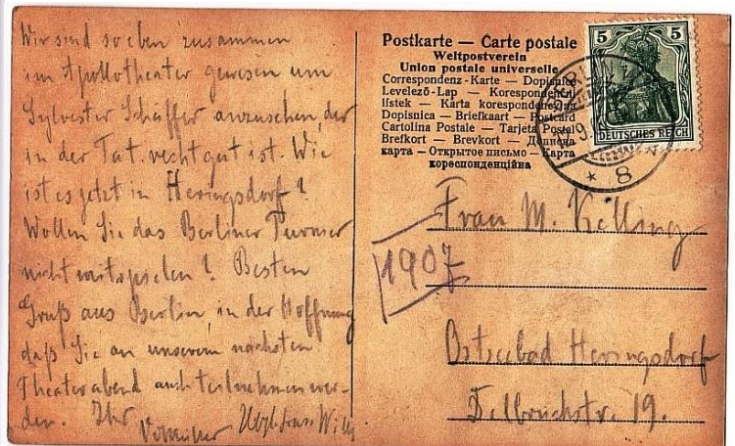 Wir sind soeben zusammen
im Apollotheater gewesen um
Sylvester Schäffer anzusehen, der
in der Tat recht gut ist. Wie
ist es jetzt in Heringsdorf?
Wollen Sie das Berliner Turnier
nicht mitspielen? Besten
Gruß aus Berlin, in der Hoffnung
daß Sie an unserem nächsten
Theaterabend auch teilnehmen wer-
den. Ihr
Postkarte — Carte postale
Weltpostverein
Union postale universelle
Correspondenz-Karte — Dopisnice
Levelező-Lap — Korespondenční
lístek — Karta korespondencyjna
Dopisnica — Briefkaart — Postcard
Cartolina Postale — Tarjeta Postal
Brefkort — Brevkort — Дописна
карта — Открытое письмо — Карта
кореспонденційна
5 5
DEUTSCHES REICH
BERLIN
* 8
Frau M. Kelling
1907
Ostseebad Heringsdorf
Delbrückstr. 19.